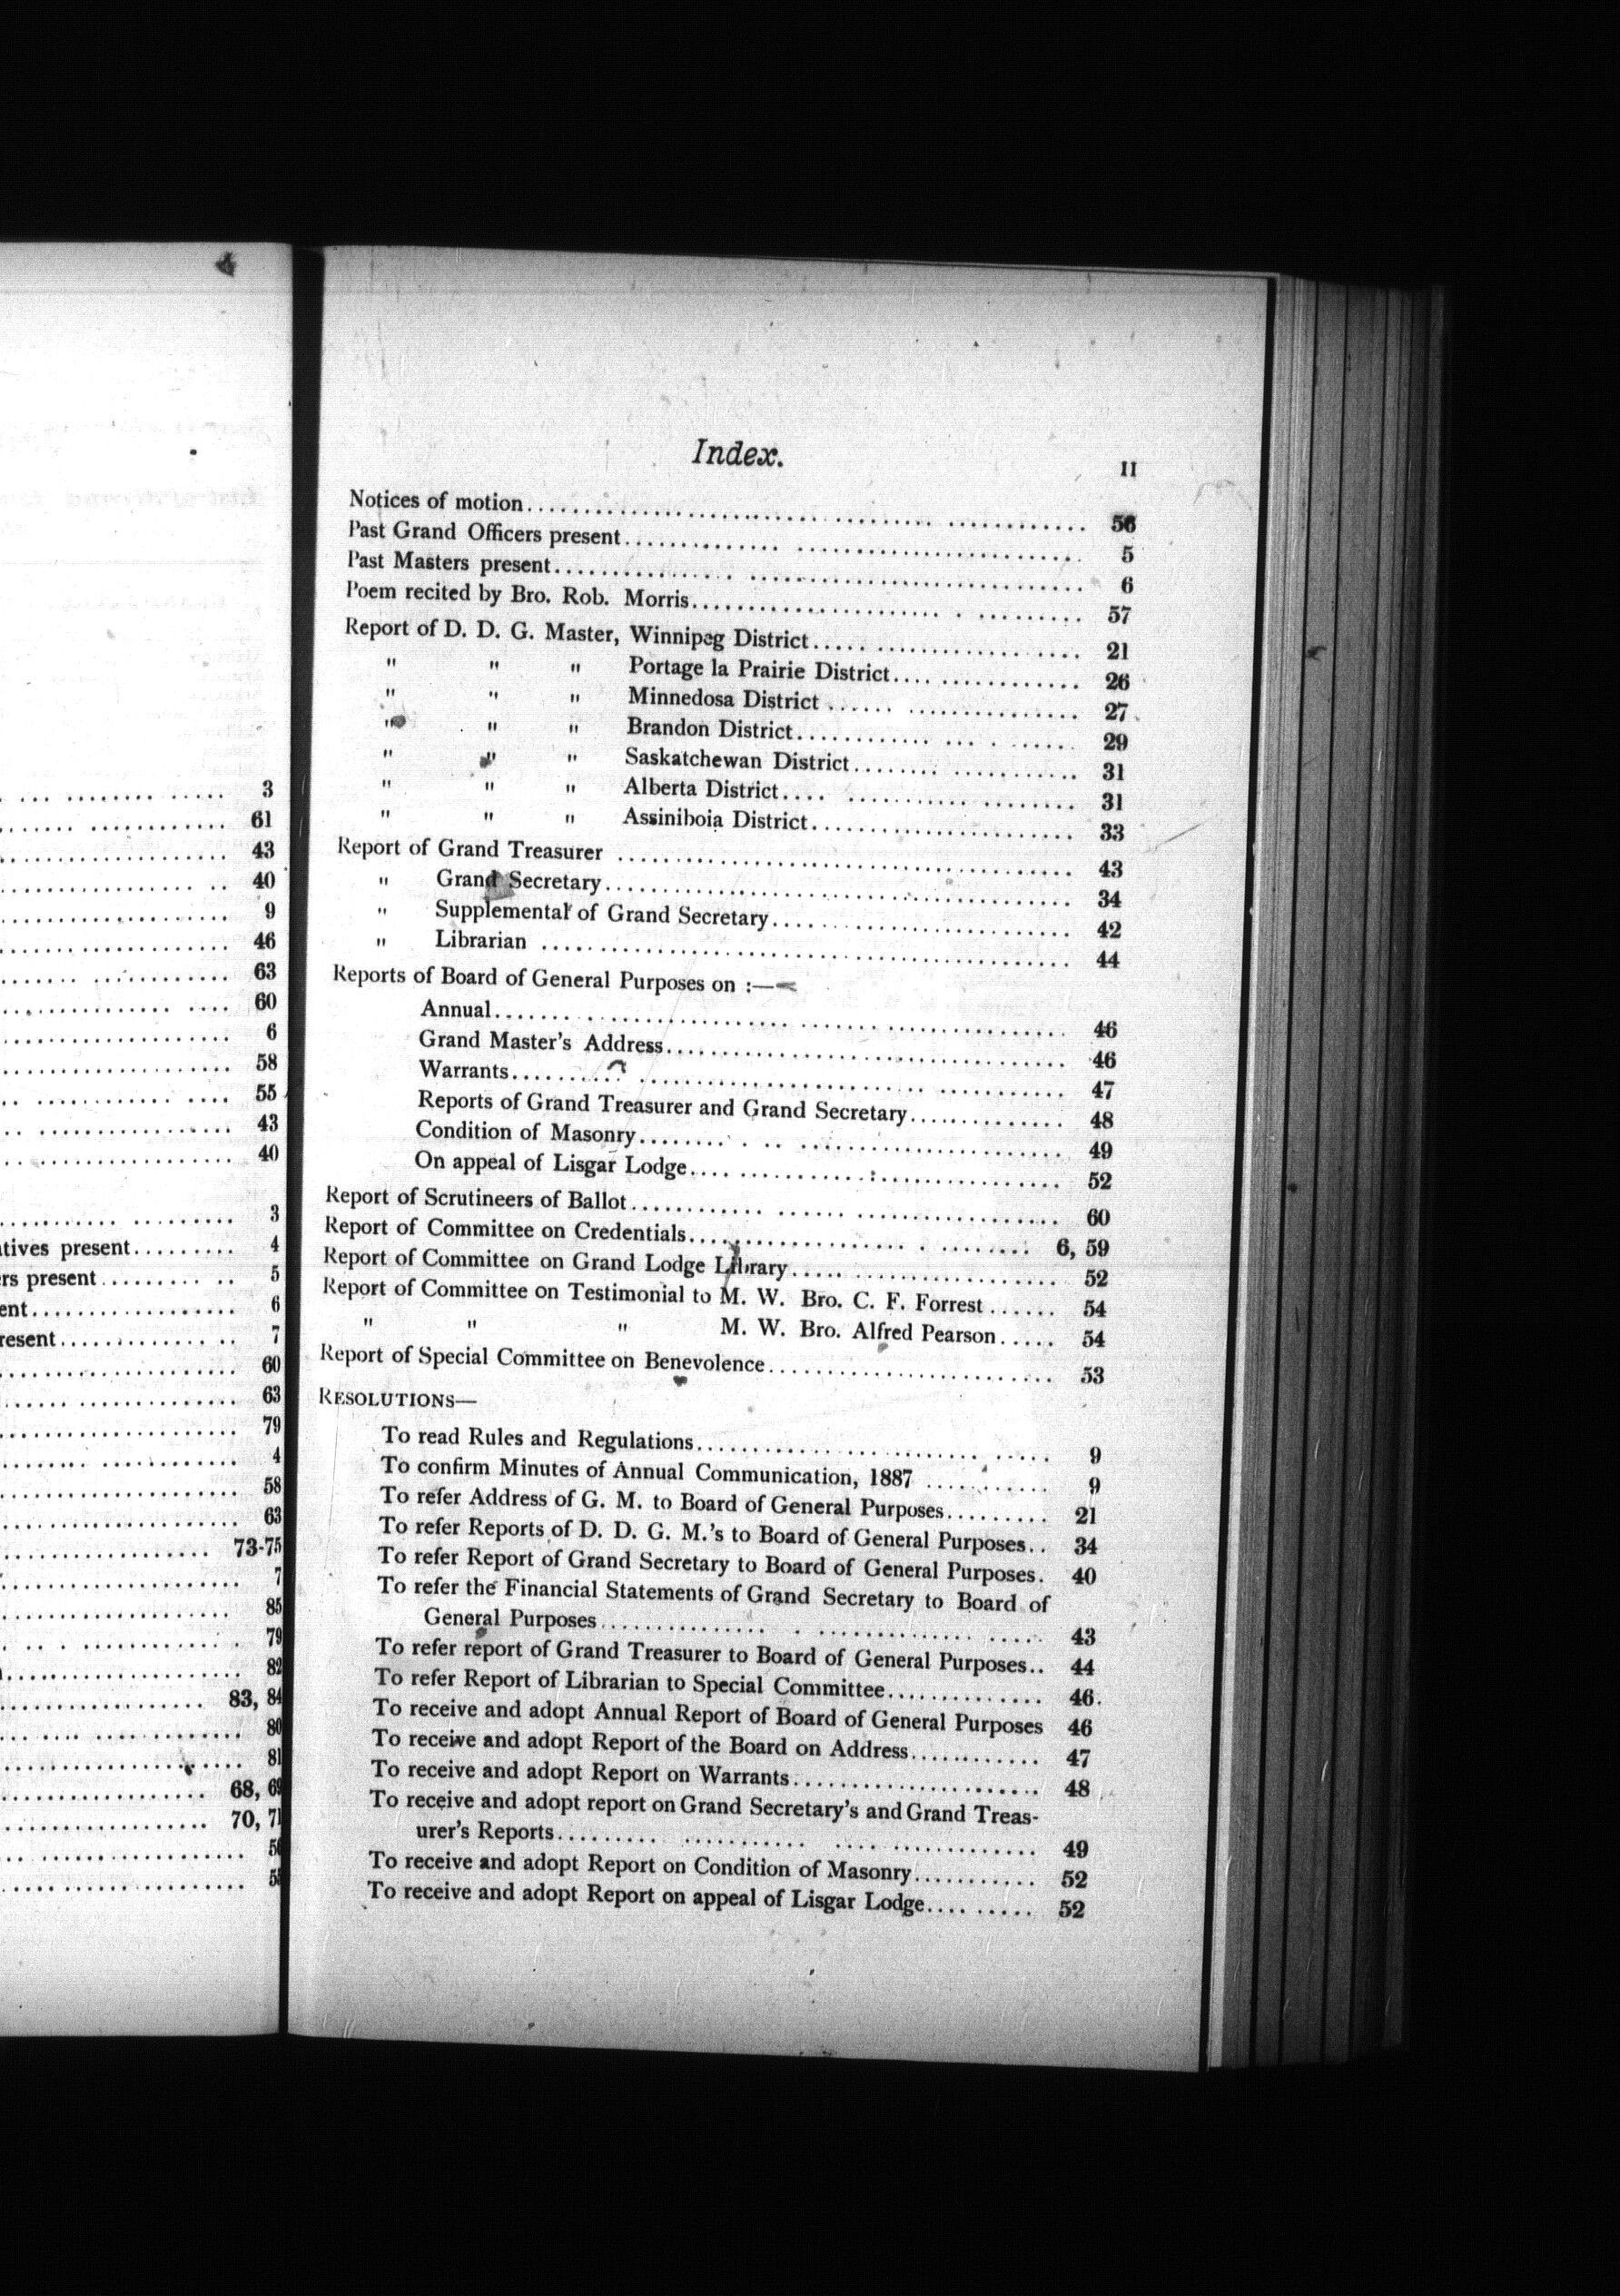 3
61
43
40
9
46
63
60
6
58
55
43
40
3
tives present......... 4
rs present......... .. 5
ent.................. 6
resent............... .. 7
60
63
79
4
58
63
73-75
7
85
79
82
83, 84
80
81
68, 69
70, 71
Index.
II
Notices of motion.................... 56
Past Grand Officers present.................... 5
Past Masters present.................... 6
Poem recited by Bro. Rob. Morris.................... 57
Report of D. D. G. Master, Winnipeg District.................... 21
" " " Portage la Prairie District.................... 26
" " " Minnedosa District .................... 27
" " " Brandon District.................... 29
" " " Saskatchewan District.................... 31
" " " Alberta District.................... 31
" " " Assiniboia District.................... 33
Report of Grand Treasurer .................... 43
" Grand Secretary.................... 34
" Supplemental of Grand Secretary.................... 42
" Librarian .................... 44
Reports of Board of General Purposes on :—
Annual.................... 46
Grand Master's Address.................... 46
Warrants.................... 47
Reports of Grand Treasurer and Grand Secretary.............. 48
Condition of Masonry.................... 49
On appeal of Lisgar Lodge.................... 52
Report of Scrutineers of Ballot.................... 60
Report of Committee on Credentials.................... 6, 59
Report of Committee on Grand Lodge Library.................... 52
Report of Committee on Testimonial to M. W. Bro. C. F. Forrest ...... 54
" " " M. W. Bro. Alfred Pearson..... 54
Report of Special Committee on Benevolence.................... 53
RESOLUTIONS—
To read Rules and Regulations.................... 9
To confirm Minutes of Annual Communication, 1887 ........... 9
To refer Address of G. M. to Board of General Purposes......... 21
To refer Reports of D. D. G. M.'s to Board of General Purposes.. 34
To refer Report of Grand Secretary to Board of General Purposes. 40
To refer the Financial Statements of Grand Secretary to Board of
General Purposes.................... 43
To refer report of Grand Treasurer to Board of General Purposes.. 44
To refer Report of Librarian to Special Committee.............. 46
To receive and adopt Annual Report of Board of General Purposes 46
To receive and adopt Report of the Board on Address............ 47
To receive and adopt Report on Warrants.................... 48
To receive and adopt report on Grand Secretary's and Grand Treas-
urer's Reports.................... 49
To receive and adopt Report on Condition of Masonry........... 52
To receive and adopt Report on appeal of Lisgar Lodge.... ..... 52